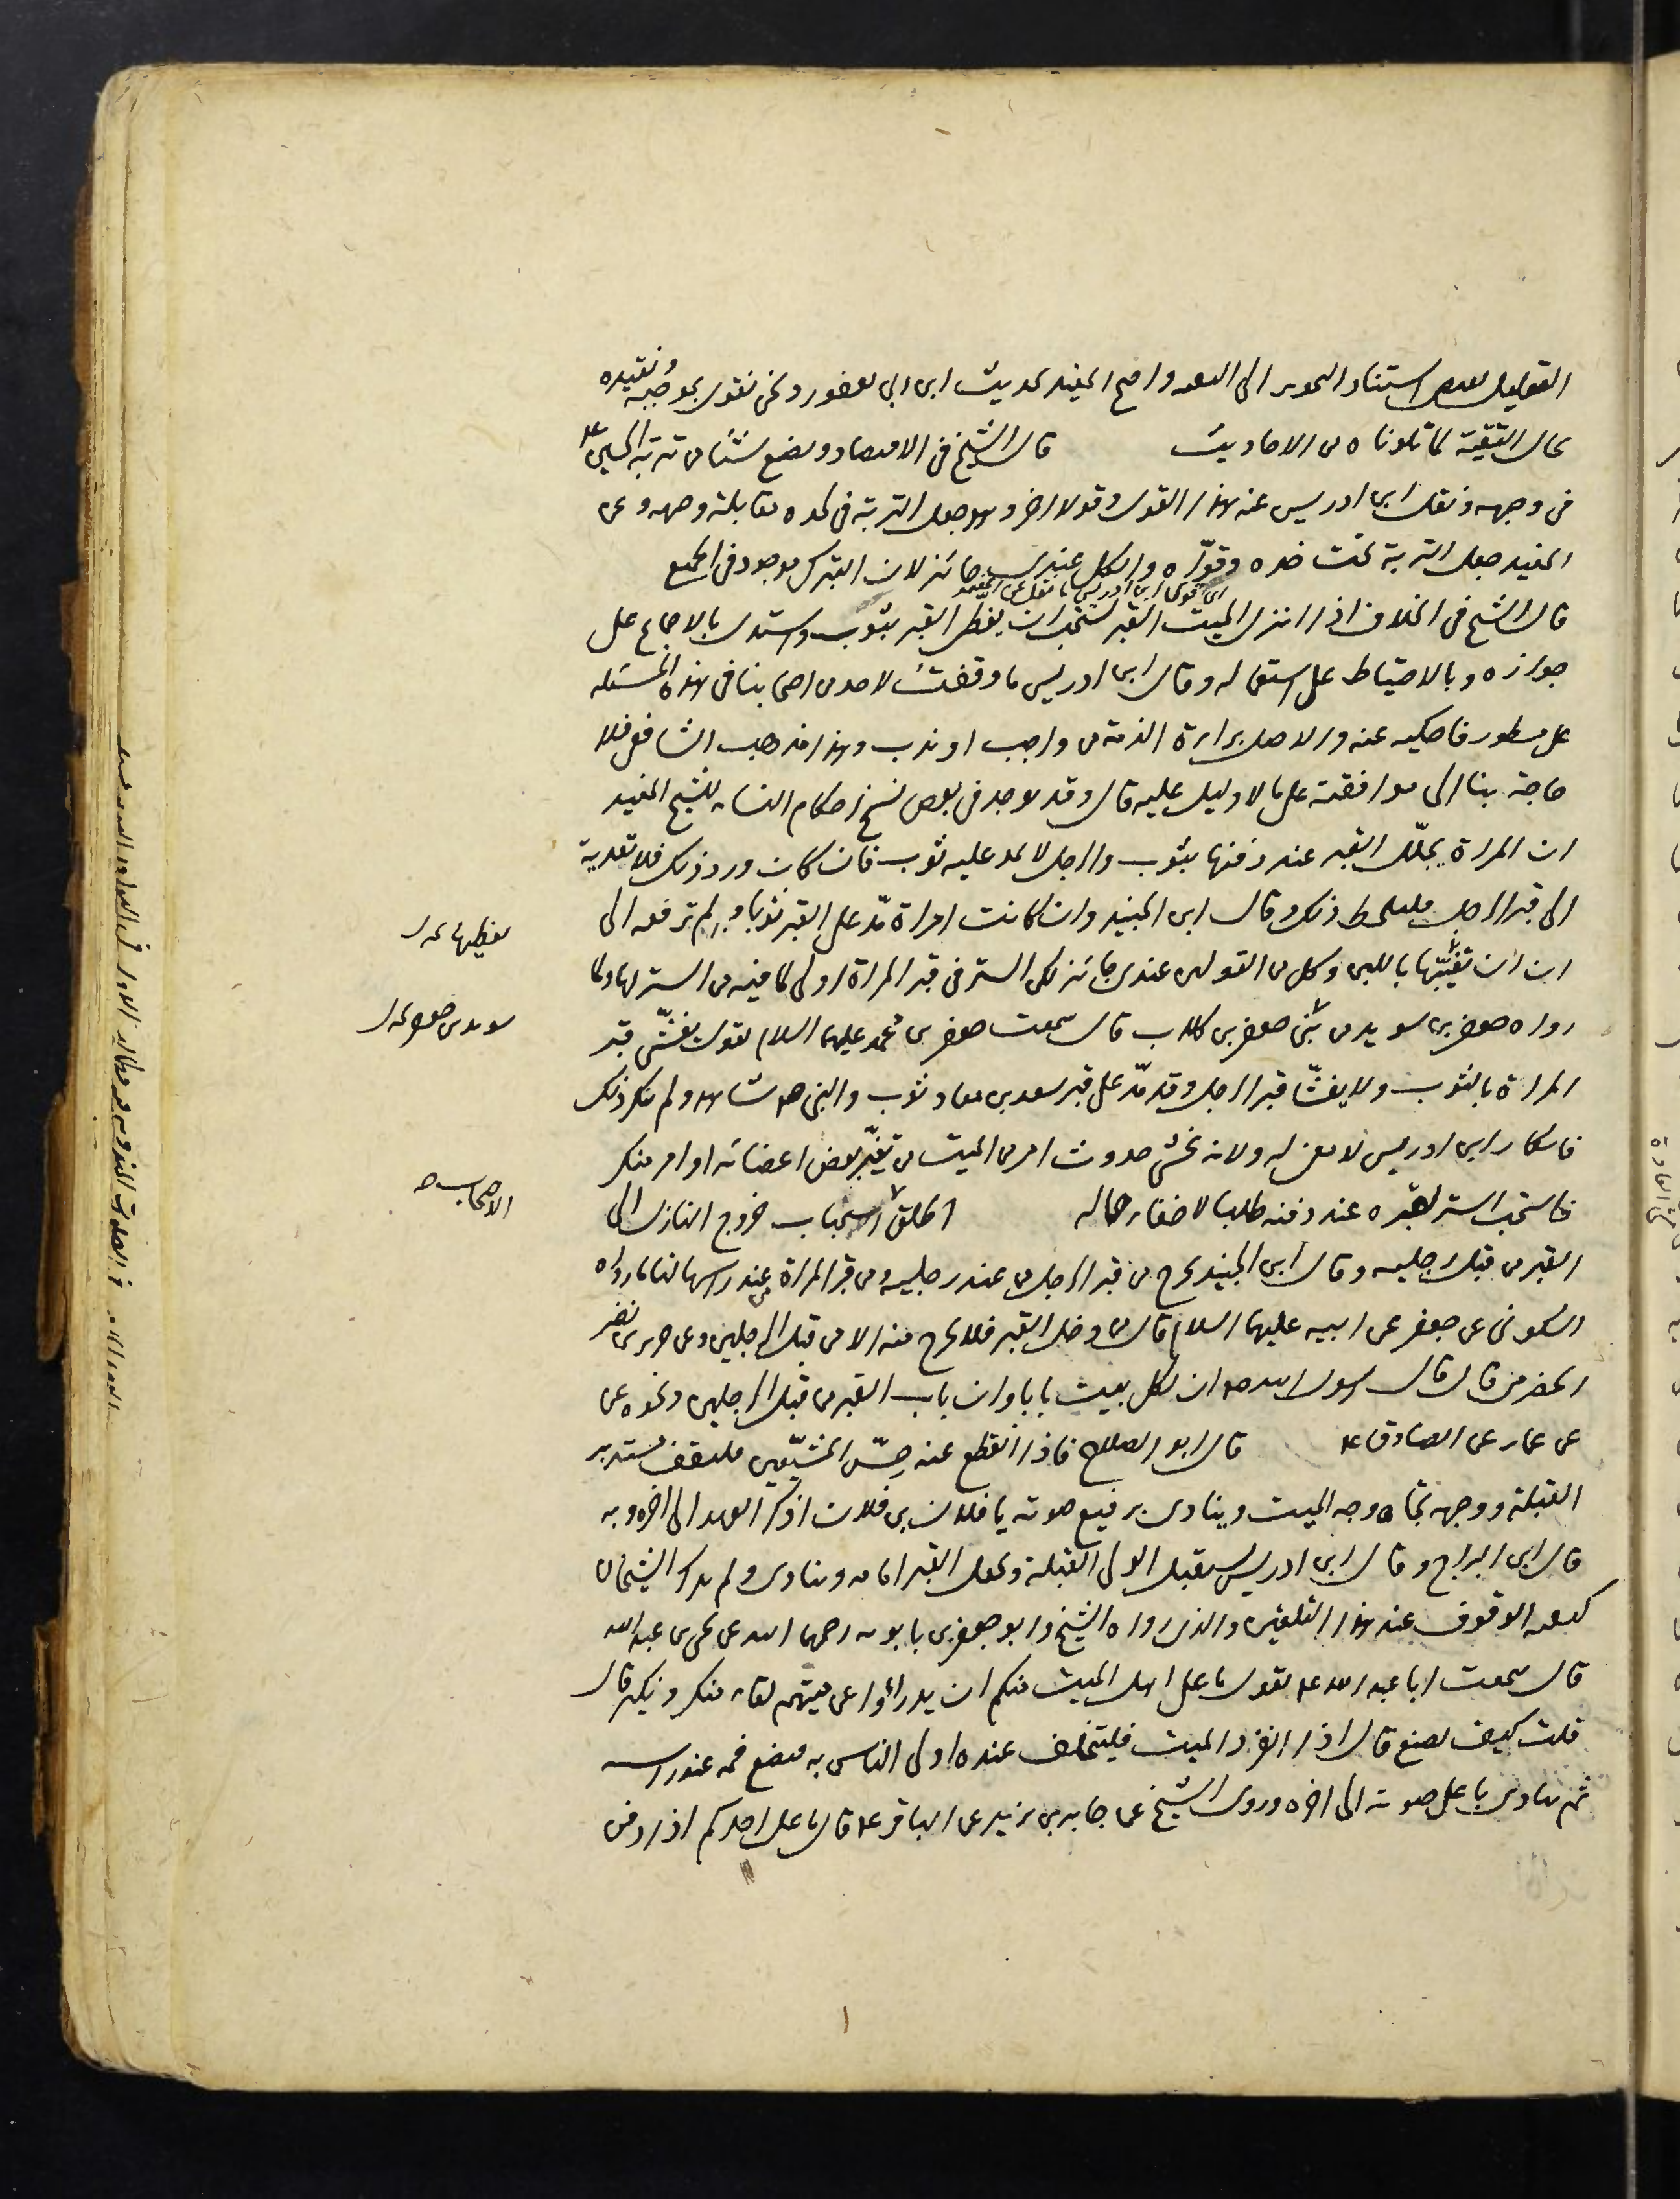 التعليل استناد التحرير الى واحتج المفيد بحديث ابن ابي يعفور ونحن نقول بموجبه ونقيده
بحال التقية لما تلوناه من الاحاديث قال الشيخ في الاقتصاد ويضع شيئا من تربة الحسين ع
في وجهه ونقل ابن ادريس عنه هذا القول وقولا اخر وهو جعل التربة في لحده مقابلة وجهه وعن
المفيد جعل التربة تحت خده وقوّاه والكل عندي جائز لان التبرك موجود في الجميع
اي قوى ابن ادريس ما نقل عن المفيد
قال الشيخ في الخلاف اذا انزل الميت القبر يستحب ان يغطى القبر بثوب واستدل بالاجماع على
جوازه وبالاحتياط على استعماله وقال ابن ادريس ما وقفت لاحد من اصحابنا في هذه المسئله
على مسطور فاحكيه عنه والاصل براءة الذمة من واجب او ندب وهذا مذهب الشافعي فلا
حاجة بنا الى موافقته على ما لا دليل عليه قال وقد يوجد في بعض نسخ احكام النساء للشيخ المفيد
ان المراة يجلّل القبر عند دفنها بثوب والرجل لا يمد عليه ثوب فان كان ورد ذلك فلا تعدية
الى قبر الرجل فليلحظ ذلك وقال ابن الجنيد وان كانت امراة مدّ على القبر ثوبا ولم ترفعه الى
ان تغيّبها باللبن وكل من القولين عندي جائز لكن الستر في قبر المراة اولى لما فيه من الستر لها ولما
رواه جعفر بن سويد من بني جعفر بن كلاب قال سمعت جعفر بن محمد عليهما السلام يقول يغشّى قبر
المراة بالثوب ولا يغشّا قبر الرجل وقد مدّ على قبر سعد بن معاذ ثوب والنبي ص شاهد ولم ينكر ذلك
فانكار ابن ادريس لا معنى له ولانه يخشى حدوث امر من الميت من تغيّر بعض اعضائه او امر منكر
فاستحب الستر لقبره عند دفنه طلبا لاخفاء حاله اطلق استحباب خروج النازل الى
القبر من قبل رجليه وقال ابن الجنيد يخرج من قبر الرجل من عند رجليه ومن قبر المراة من عند راسها لنا ما رواه
السكوني عن جعفر عن ابيه عليهما السلام قال من دخل القبر فلا يخرج منه الا من قبل الرجلين وعن جبير بن نفير
الحضرمي قال قال رسول الله ص ان لكل بيت بابا وان باب القبر من قبل الرجلين ونحوه عن
عن عمار عن الصادق ع قال ابو الصلاح فاذا انقطع عنه حِسّ المشيّعين فليقف مستدبر
القبلة ووجهه تجاه وجه الميت وينادي برفيع صوته يا فلان بن فلان اذكر العهد الى اخره وبه
قال ابن البراج وقال ابن ادريس يستقبل الولي القبلة ويجعل القبر امامه وينادي ولم يذكر الشيخان
كيفية الوقوف عند هذا التلقين والذي رواه الشيخ وابو جعفر بن بابويه رحمهما الله عن يحيى بن عبد الله
قال سمعت ابا عبد الله ع يقول ما على اهل الميت منكم ان يدرائوا عن ميتهم لقاء منكر ونكير قال
قلت كيف نصنع قال اذا افرد الميت فليتخلف عنده اولى الناس به فيضع فمه عند راسه
ثم ينادي باعلى صوته الى اخره وروى الشيخ عن جابر بن يزيد عن الباقر ع قال ما على احدكم اذا دفن
الاصحاب